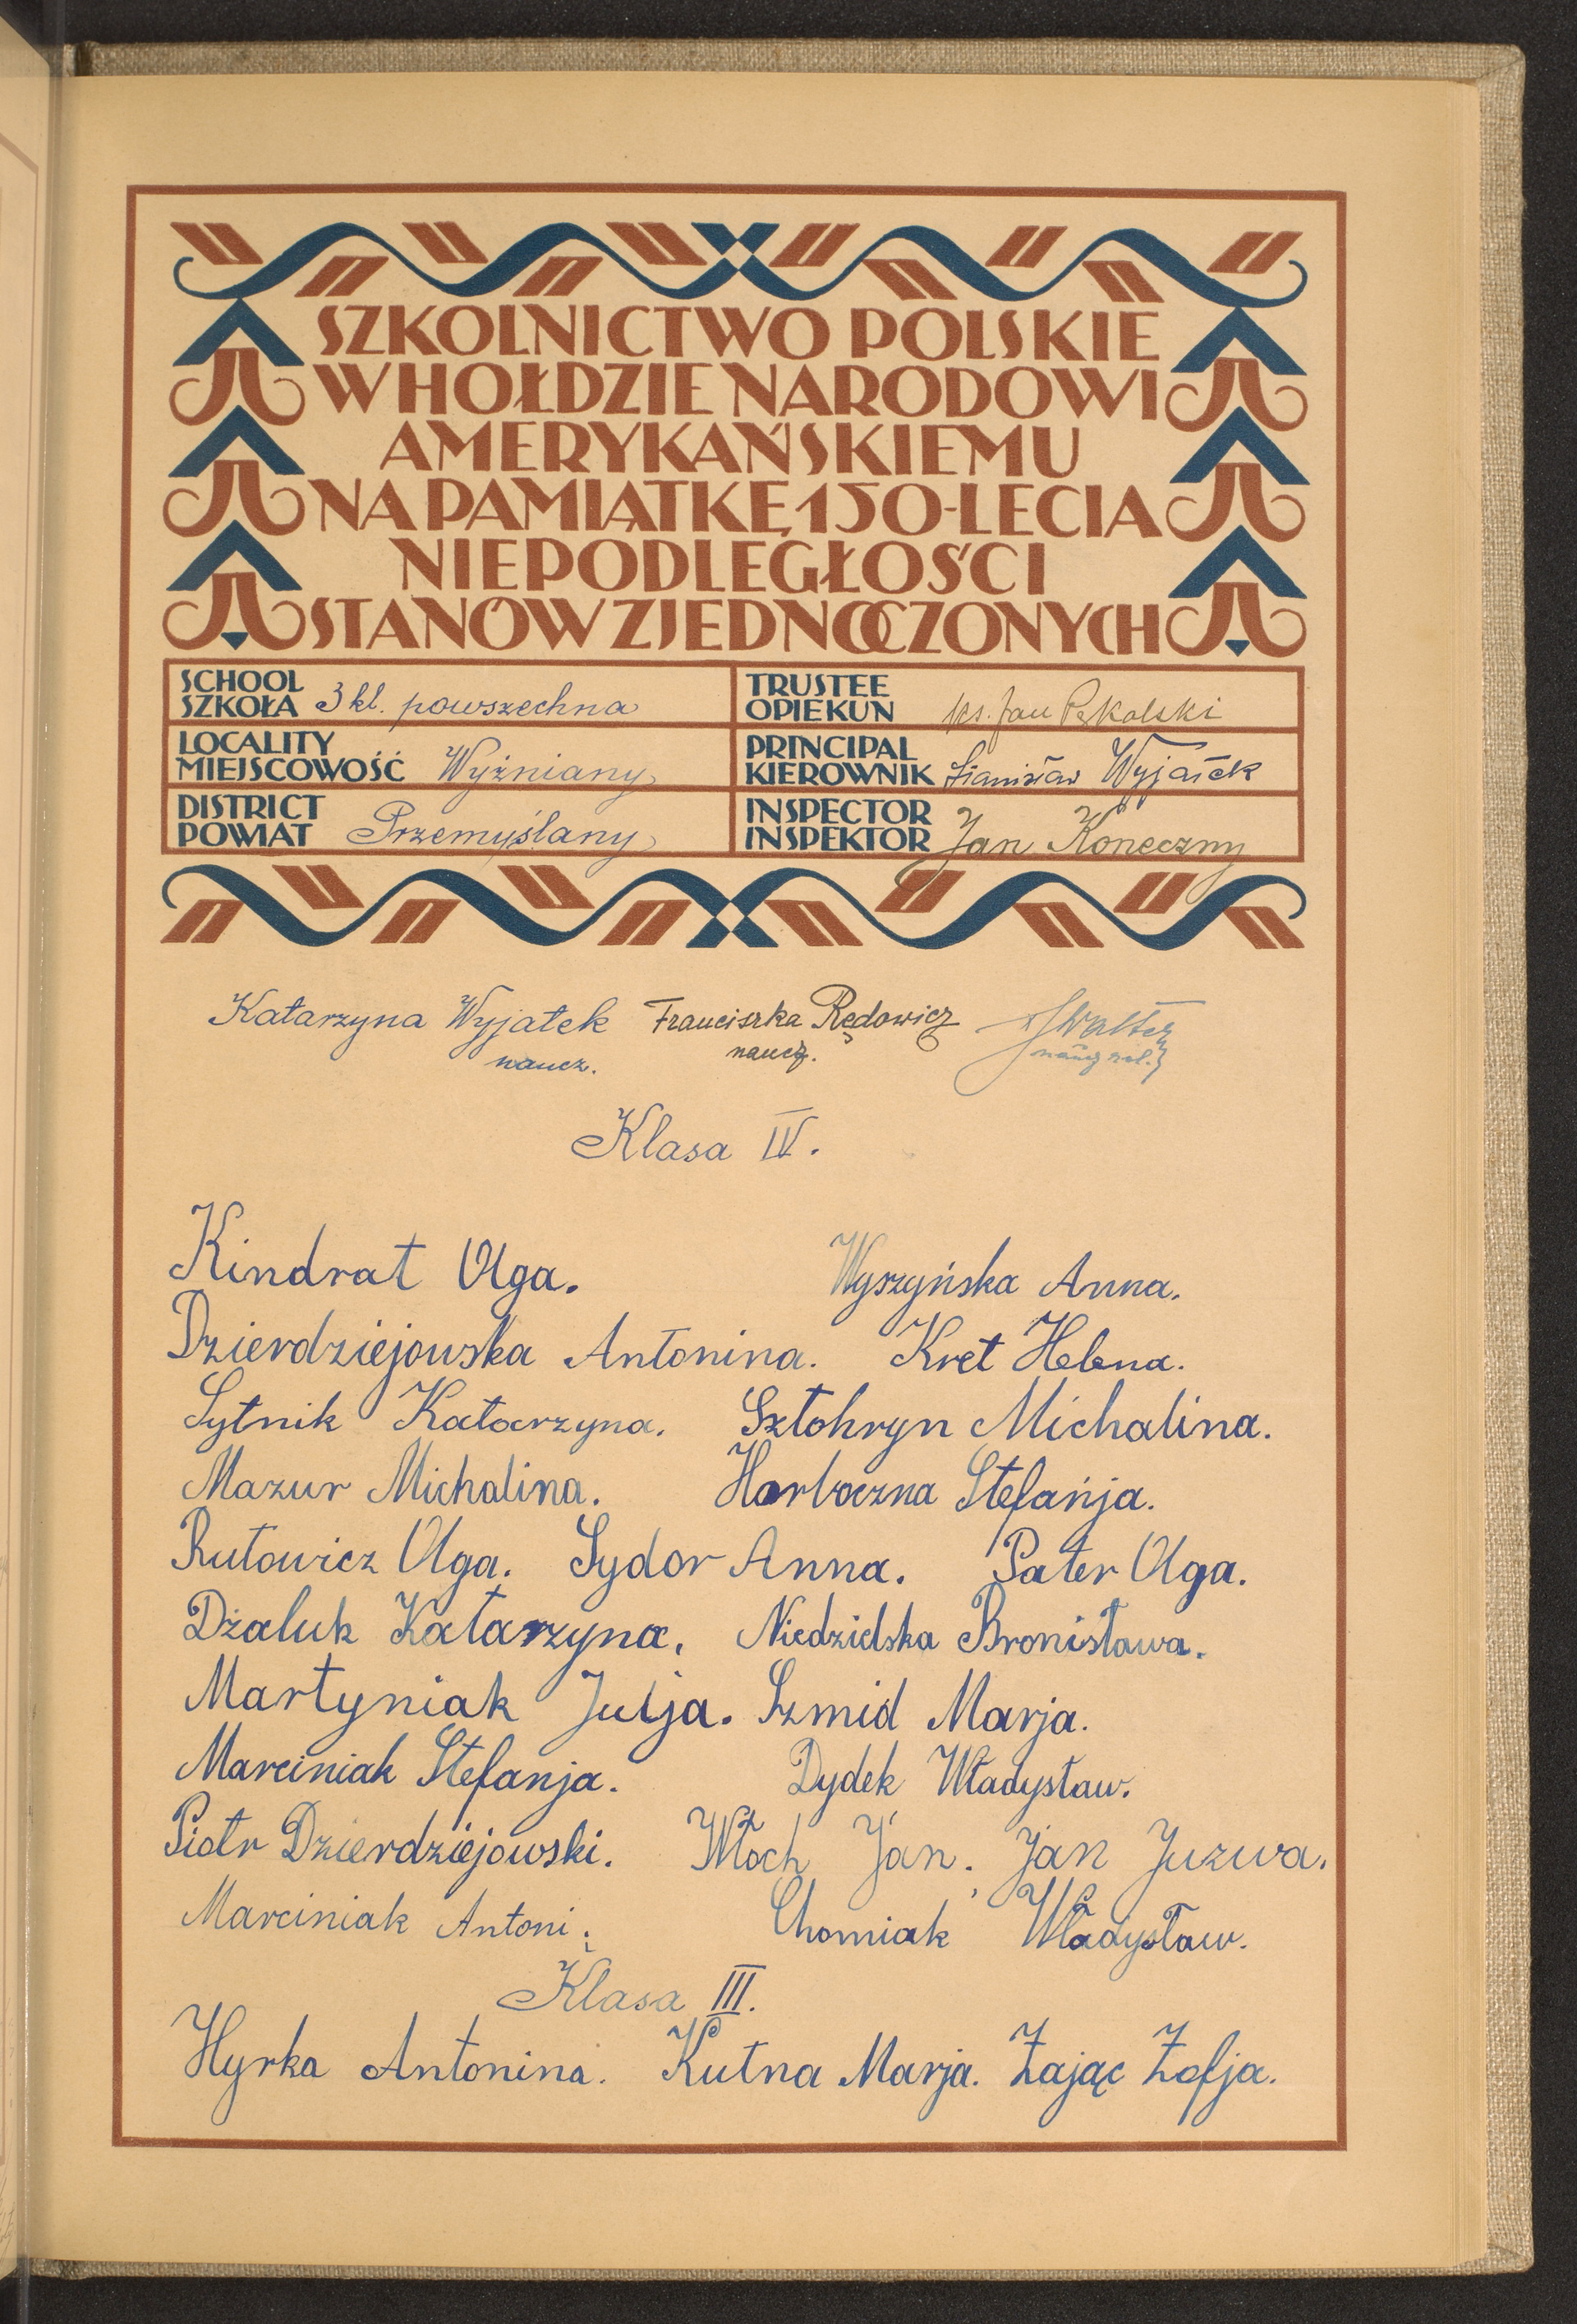 SZKOLNICTWO POLSKIE
W HOŁDZIE NARODOWI
AMERYKAŃSKIEMU
NA PAMIĄTKĘ 150-LECIA
NIEPODLEGŁOŚCI
STANÓW ZJEDNOCZONYCH
SCHOOL
SZKOŁA 3 kl. powszechna
TRUSTEE
OPIEKUN ks. Jan
LOCALITY
MIEJSCOWOŚĆ Wyżniany
PRINCIPAL
KIEROWNIK Stanisław Wyjatek
DISTRICT
POWIAT Przemyślany
INSPECTOR
INSPEKTOR Jan Koneczny
Katarzyna Wyjatek Franciszka Rędowicz
naucz. naucz.
Klasa IV.
Kindrat Olga. Wyszyńska Anna.
Dzierdziejowska Antonina. Kret Helena.
Sytnik Katarzyna. Sztohryn Michalina.
Mazur Michalina. Harbaczna Stefańja.
Rutowicz Olga. Sydor Anna. Pater Olga.
Dżaluk Katarzyna. Niedzielska Bronisława.
Martyniak Julja. Szmid Marja.
Marciniak Stefanja. Dydek Władysław.
Piotr Dzierdziejowski. Włoch Jan. Jan Juzwa.
Marciniak Antoni. Chomiak Władysław.
Klasa III.
Hyrka Antonina. Kutna Marja. Zając Zofja.